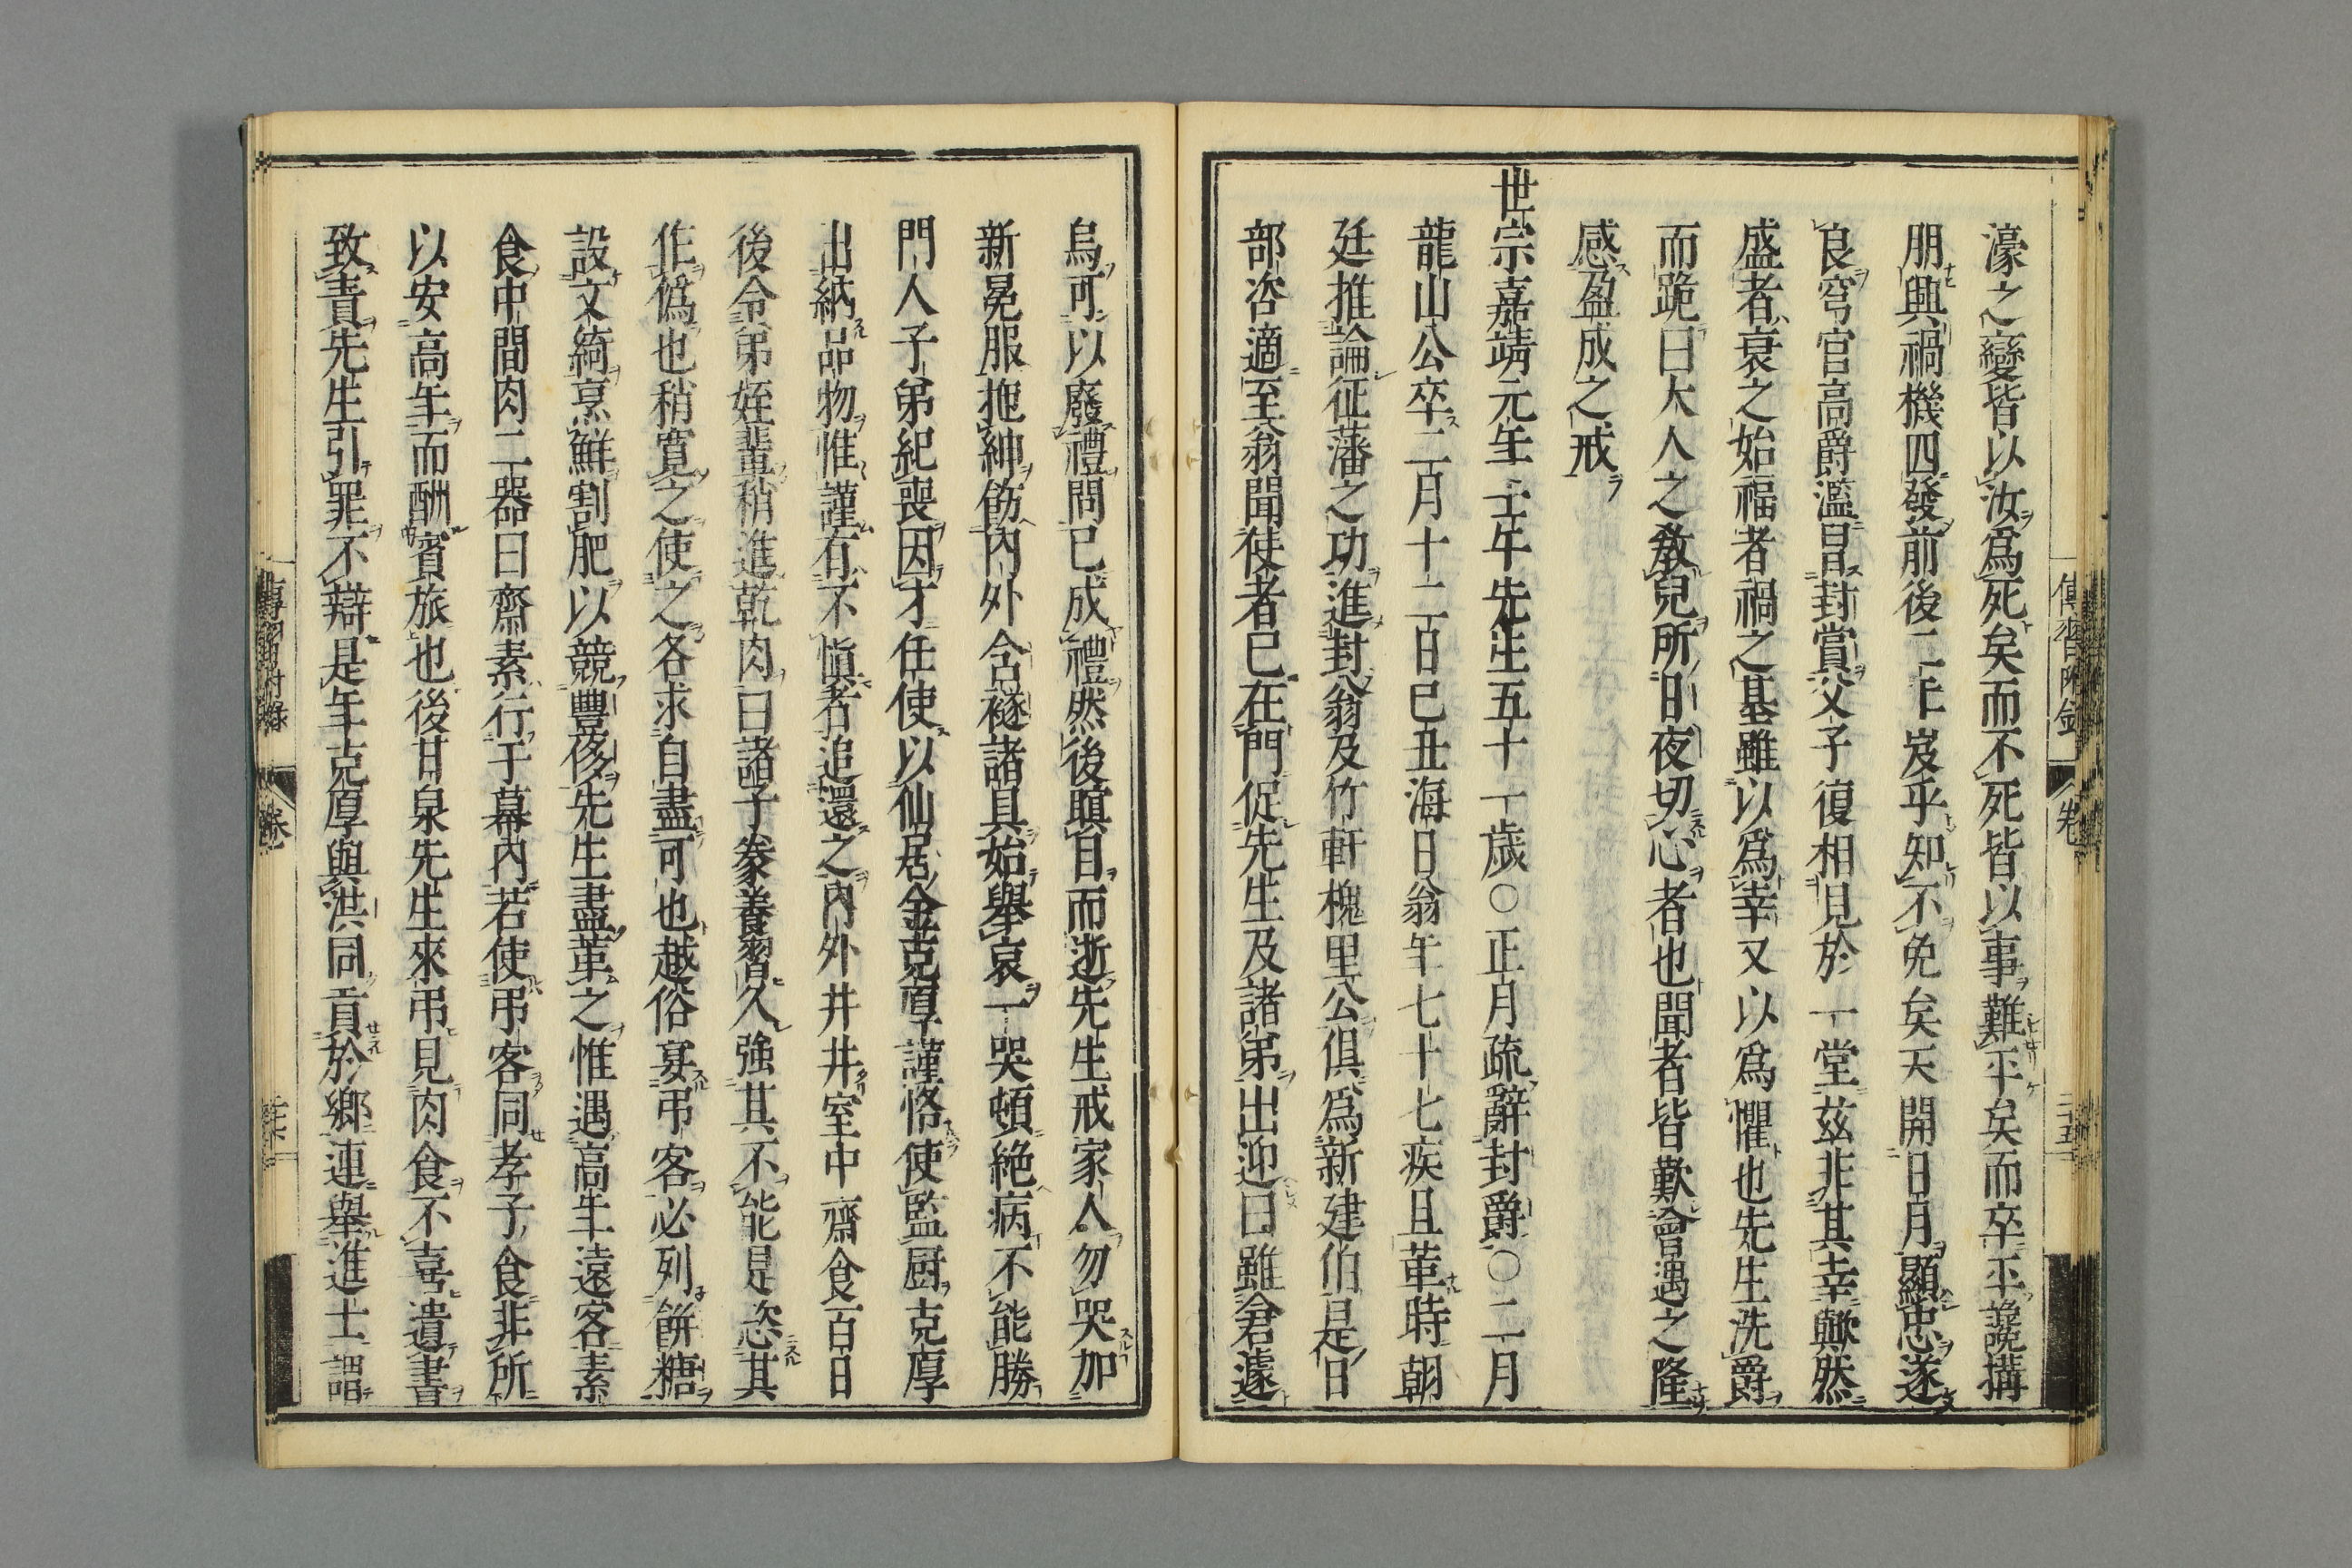 濠之變皆以汝爲死矣而不死皆以事難平矣而卒平讒搆
朋興禍機四發前後二年岌乎知不免矣天開日月顯忠遂
良穹官高爵濫冒封賞父子復相見於一堂茲非其幸歟然
盛者衰之始福者禍之基雖以爲幸又以爲懼也先生洗爵
而跪曰大人之敎兒所日夜切心者也聞者皆歎會遇之隆
感盈成之戒
世宗嘉靖元年壬午先生五十一歲○正月疏辭封爵○二月
龍山公卒二月十二日己丑海日翁年七十七疾且革時朝
廷推論征藩之功進封翁及竹軒槐里公俱爲新建伯是日
部咨適至翁聞使者已在門促先生及諸弟出迎曰雖倉遽
烏可以廢禮問已成禮然後瞑目而逝先生戒家人勿哭加
新冕服拖紳飭內外含襚諸具始舉哀一哭頓絶病不能勝
門人子弟紀喪因才任使以仙居金克厚謹恪使監厨克厚
出納品物惟謹有不愼者追還之內外井井室中齋食百日
後令弟姪輩稍進乾肉曰諸子豢養習久強其不能是恣其
作僞也稍寬之使之各求自盡可也越俗宴弔客必列餅糖
設文綺烹鮮割肥以競豐侈先生盡革之惟遇高年遠客素
食中間肉二器曰齋素行于幕內若使弔客同孝子食非所
以安高年而酬賓旅也後甘泉先生來弔見肉食不喜遺書
致責先生引罪不辯是年克厚與洪同貢於鄉連舉進士謂
傳習附錄
卷
二十五
傳習附錄
卷